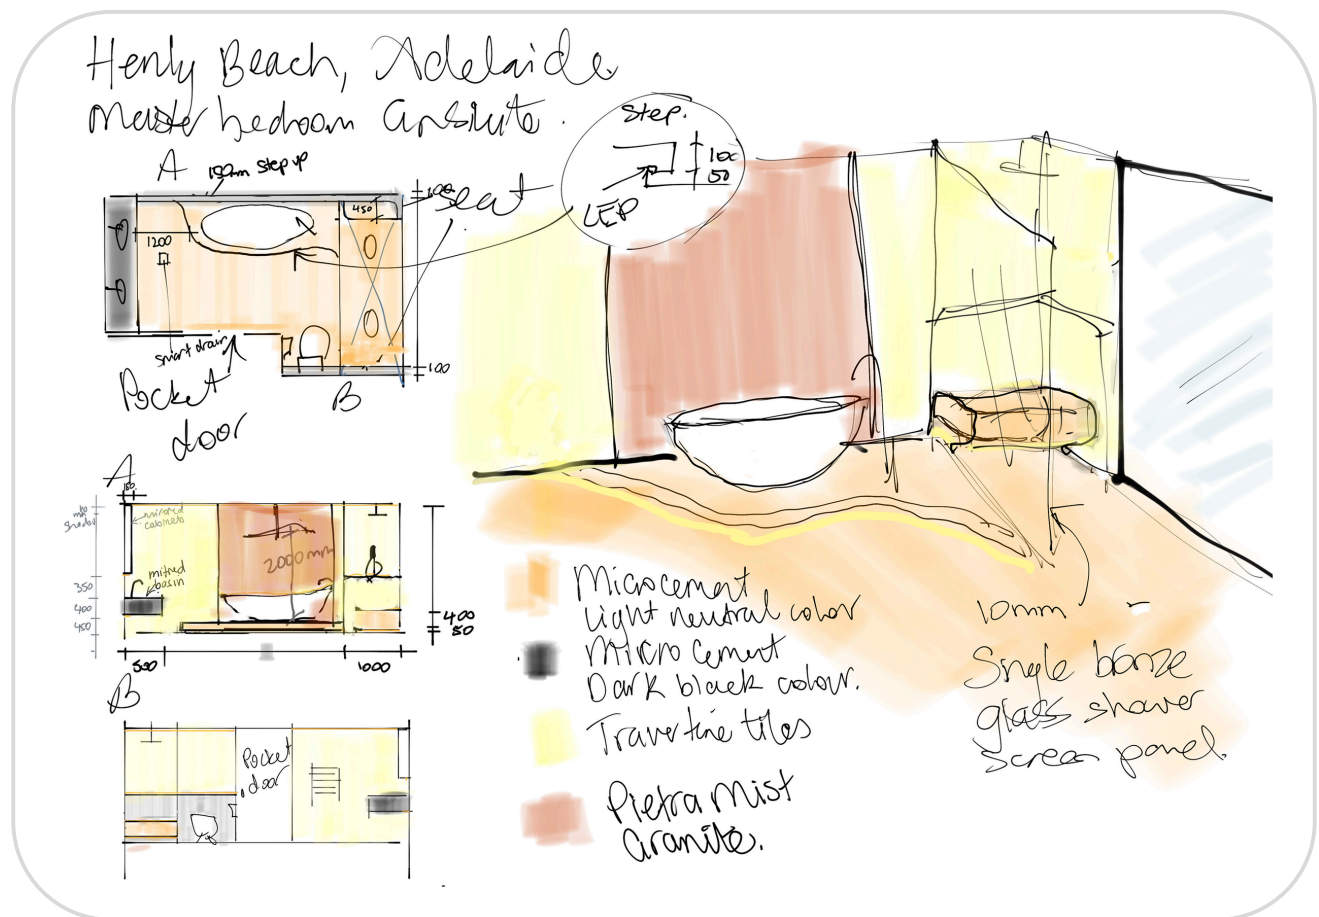 Henly Beach, Adelaide
Master bedroom Ensiute.
A
150mm step up
Step.
100
50
LED
100
seat
450
1200
smart drain
100
Pocket
door
B
A
150
mirrored
cabinets
shadow
mitred
basin
2000mm
350
400
450
400
50
500
1000
B
Pocket
door
Microcement
light neutral color
Micro Cement
Dark black colour.
Travertine tiles
Pietra Mist
Granite.
10mm
Single bronze
glass shower
screen panel.